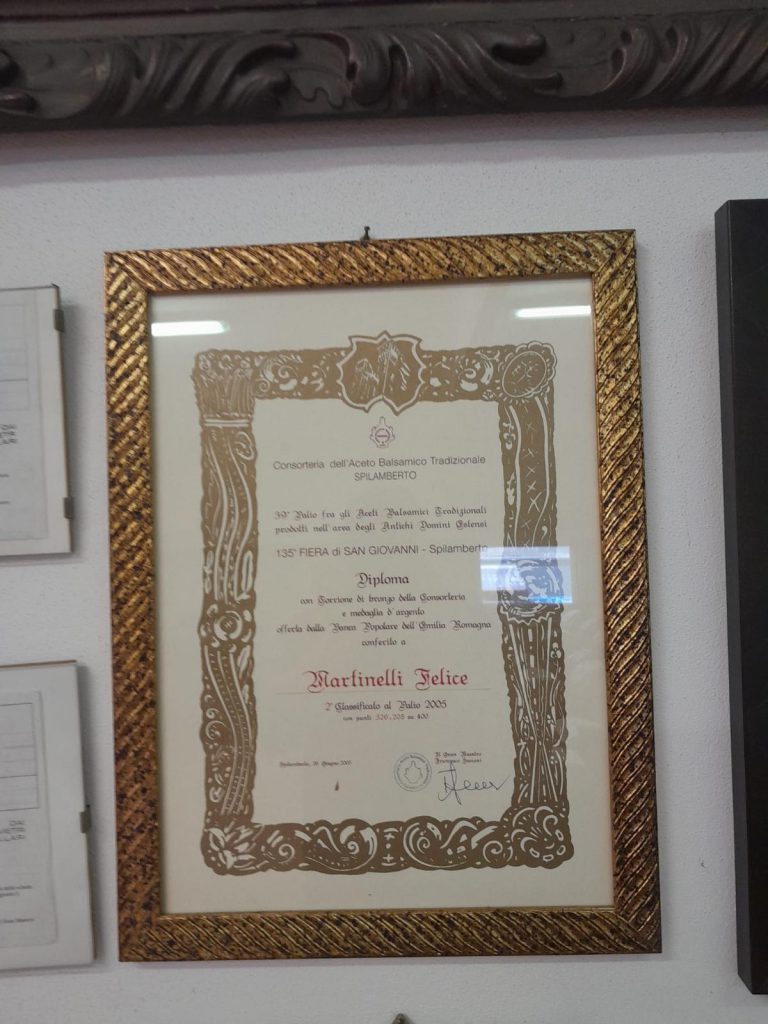 Consorteria dell'Aceto Balsamico Tradizionale
SPILAMBERTO
39° Palio fra gli Aceti Balsamici Tradizionali
prodotti nell'area degli Antichi Domini Estensi
135ª FIERA di SAN GIOVANNI - Spilamberto
Diploma
con Torrione di bronzo della Consorteria
e medaglia d'argento
offerta dalla Banca Popolare dell'Emilia Romagna
conferito a
Martinelli Felice
2° Classificato al Palio 2005
con punti 326,208 su 400
Spilamberto, 26 Giugno 2005
Il Gran Maestro
DAI
DAI